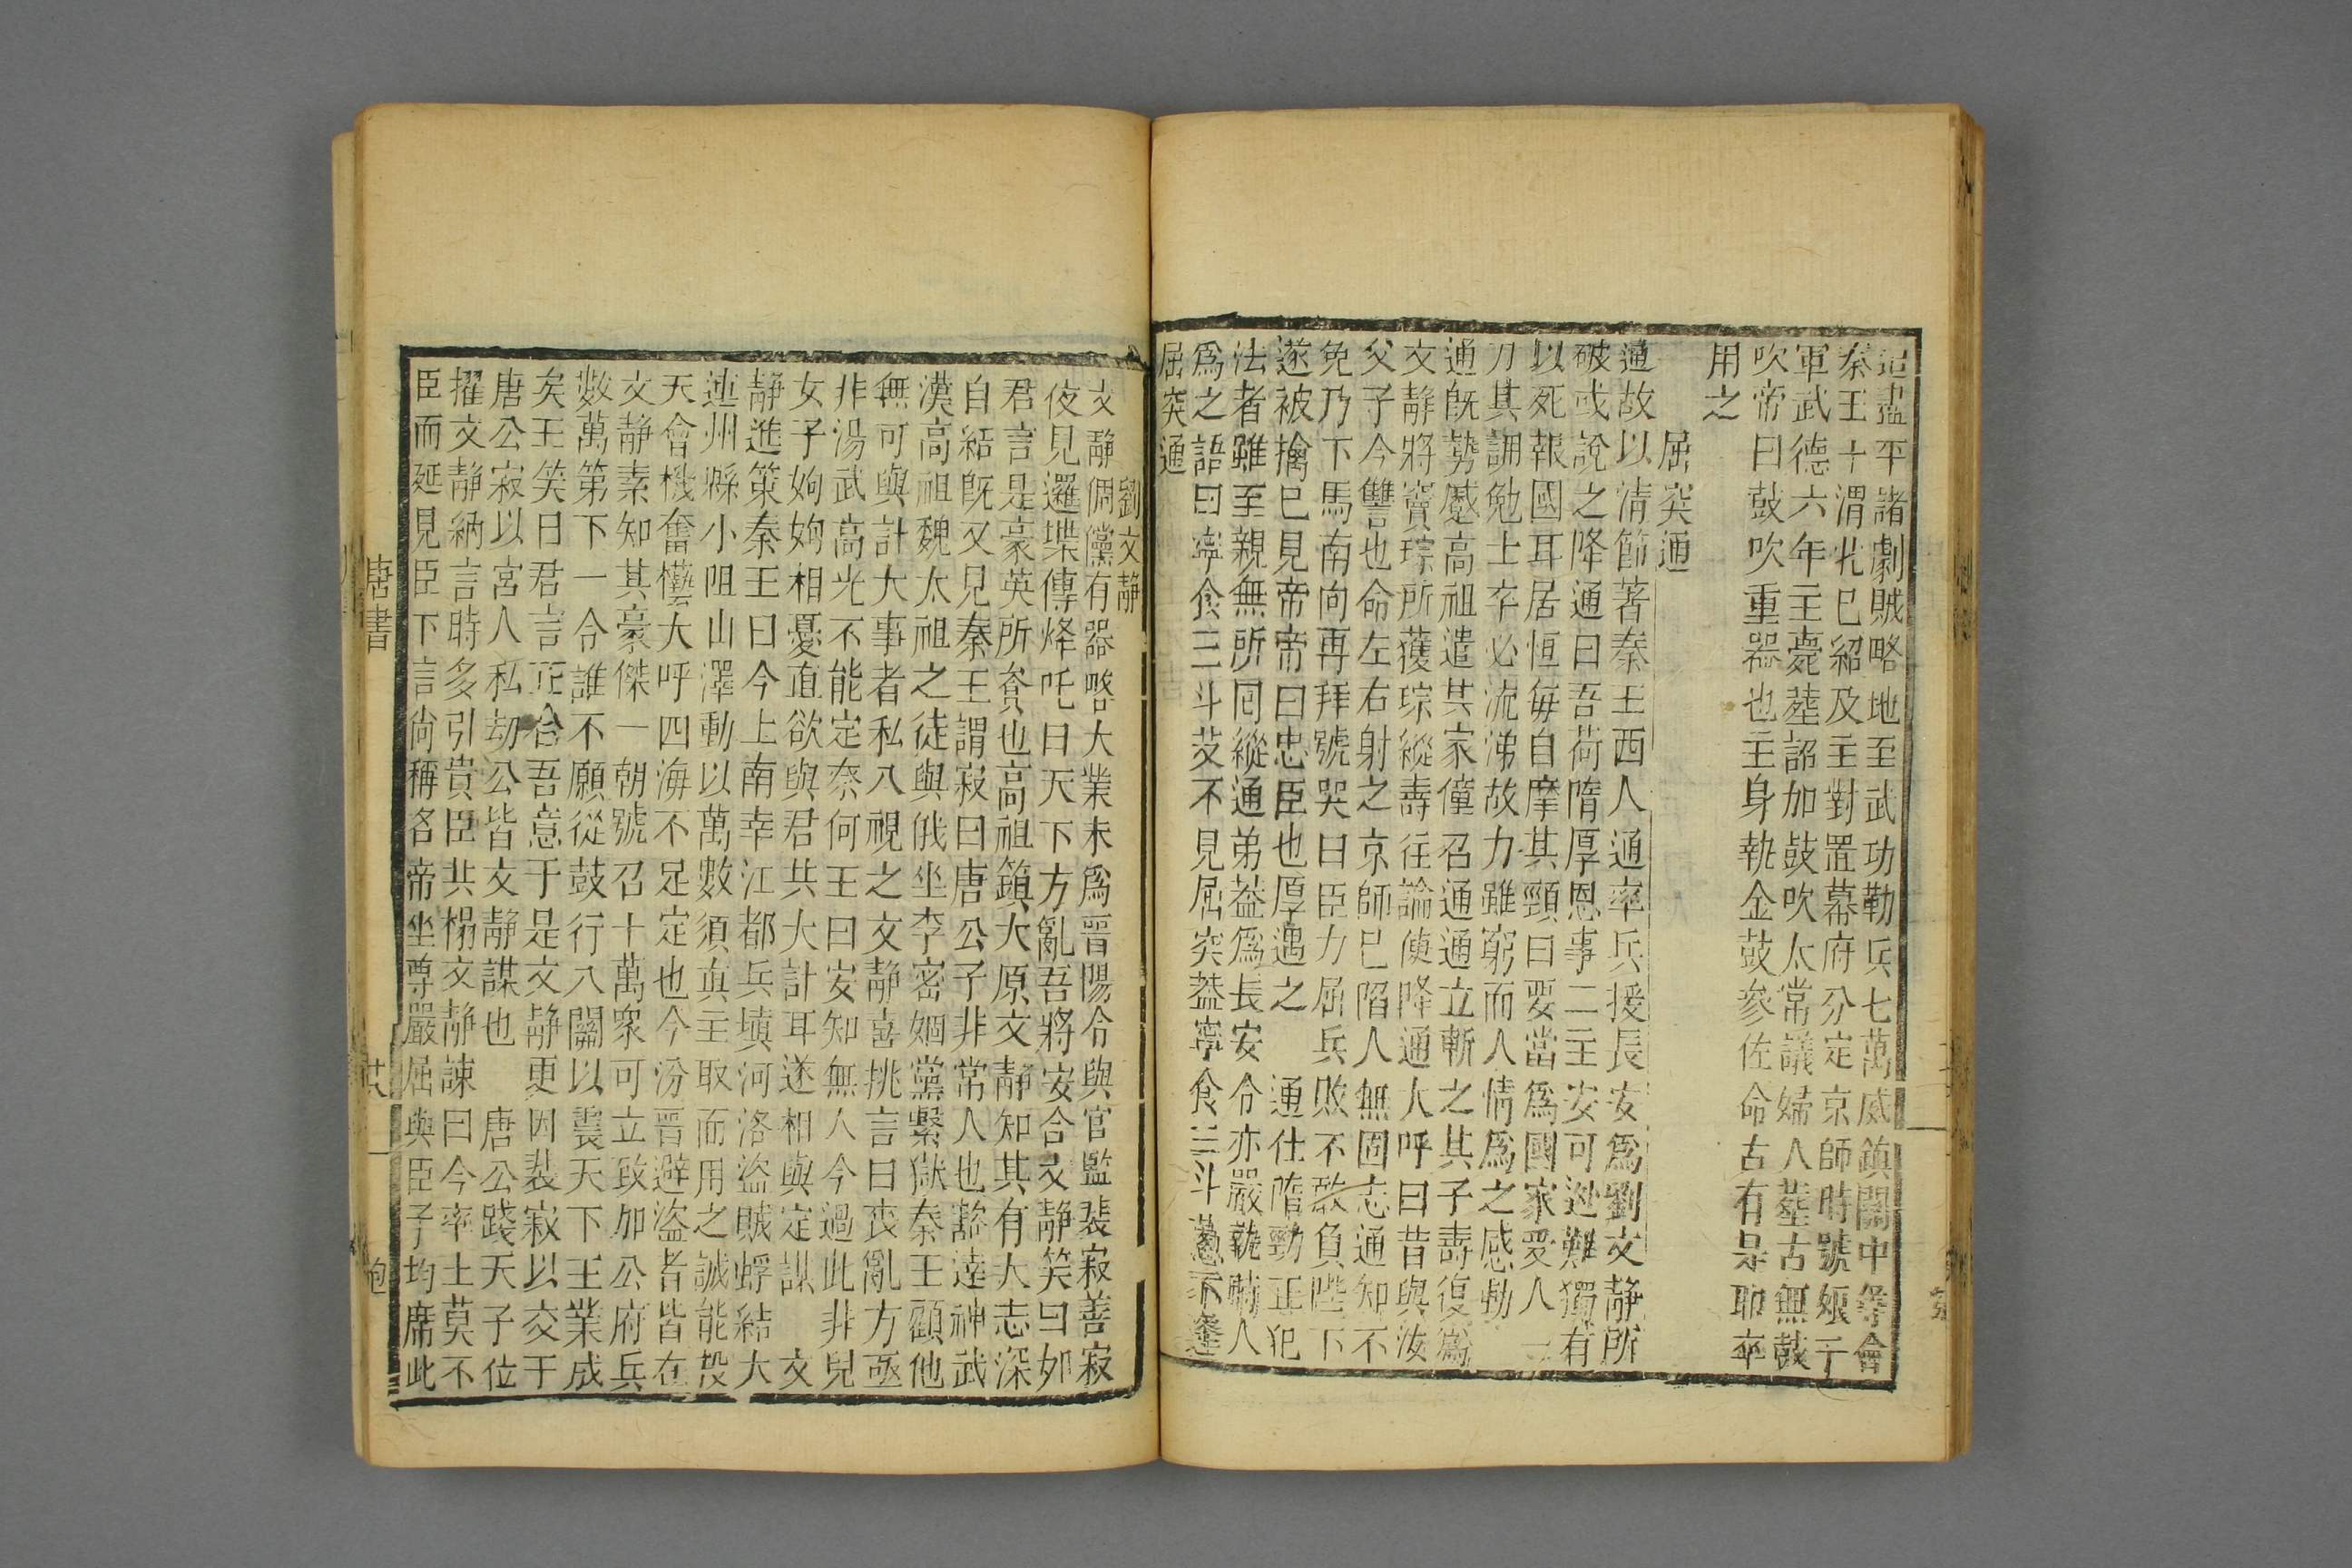 盡平諸劇賊略地至武功勒兵七萬威鎮關中等會
秦王十渭北已紹及主對置幕府分定京師時號娘子
軍武德六年主薨葬詔加鼓吹太常議婦人葬古無鼓
吹帝曰鼓吹重器也主身執金鼓參佐命古有是耶卒
用之
屈突通
通故以清節著秦王西人通率兵援長安爲劉文靜所
破或說之降通曰吾荷隋厚恩事二主安可逃難獨有
以死報國耳居恒每自摩其頸曰要當爲國家受人一
刀其訓勉士卒必流涕故力雖窮而人情爲之感動
通旣勢蹙高祖遣其家僮召通通立斬之其子壽復爲
文靜將竇琮所獲琮縱壽往論使降通大呼曰昔與汝
父子今讐也命左右射之京師已陷人無固志通知不
免乃下馬南向再拜號哭曰臣力屈兵敗不敢負陛下
遂被擒已見帝帝曰忠臣也厚遇之 通仕隋勁正犯
法者雖至親無所囘縱通弟葢爲長安令亦嚴執時人
爲之語曰寧食三斗艾不見屈突葢寧食三斗蔥不逢
屈突通
劉文靜
文靜倜儻有器略大業末爲晉陽令與官監裴寂善寂
夜見邏堞傳烽吒曰天下方亂吾將安合文靜笑曰如
君言是豪英所資也高祖鎮大原文靜知其有大志深
自結旣又見秦王謂寂曰唐公子非常人也豁達神武
漢高祖魏太祖之徒與俄坐李密姻黨繫獄秦王顧他
無可與計大事者私入視之文靜喜挑言曰喪亂方亟
非湯武高光不能定柰何王曰安知無人今過此非兒
女子姁姁相憂直欲與君共大計耳遂相與定謀 文
靜進策秦王曰今上南幸江都兵塡河洛盜賊蜉結大
連州縣小阻山澤動以萬數須眞主取而用之誠能投
天會機奮檥大呼四海不足定也今汾晉避盜者皆在
文靜素知其豪傑一朝號召十萬衆可立致加公府兵
數萬第下一令誰不願從鼓行入關以震天下王業成
矣王笑曰君言正合吾意于是文靜更因裴寂以交于
唐公寂以宮人私劫公皆文靜謀也 唐公踐天子位
擢文靜納言時多引貴臣共榻文靜諫曰今率土莫不
臣而延見臣下言尚稱名帝坐尊嚴屈與臣子均席此
唐書